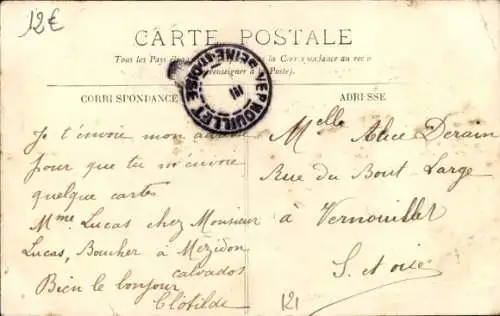 12€
CARTE POSTALE
Tous les Pays la Correspondance au recto
renseigner à la Poste).
CORRESPONDANCE
ADRESSE
VERNOUILLET
SEINE-ET-OISE
Je t'envoie mon adresse
pour que tu m'envoie
quelque cartes
Mme Lucas chez Monsieur
Lucas, Boucher à Mézidon
calvados
Bien le bonjour
Clotilde
Melle Alice Derain
Rue du Bout-Large
à Vernouillet
S. et oise
121